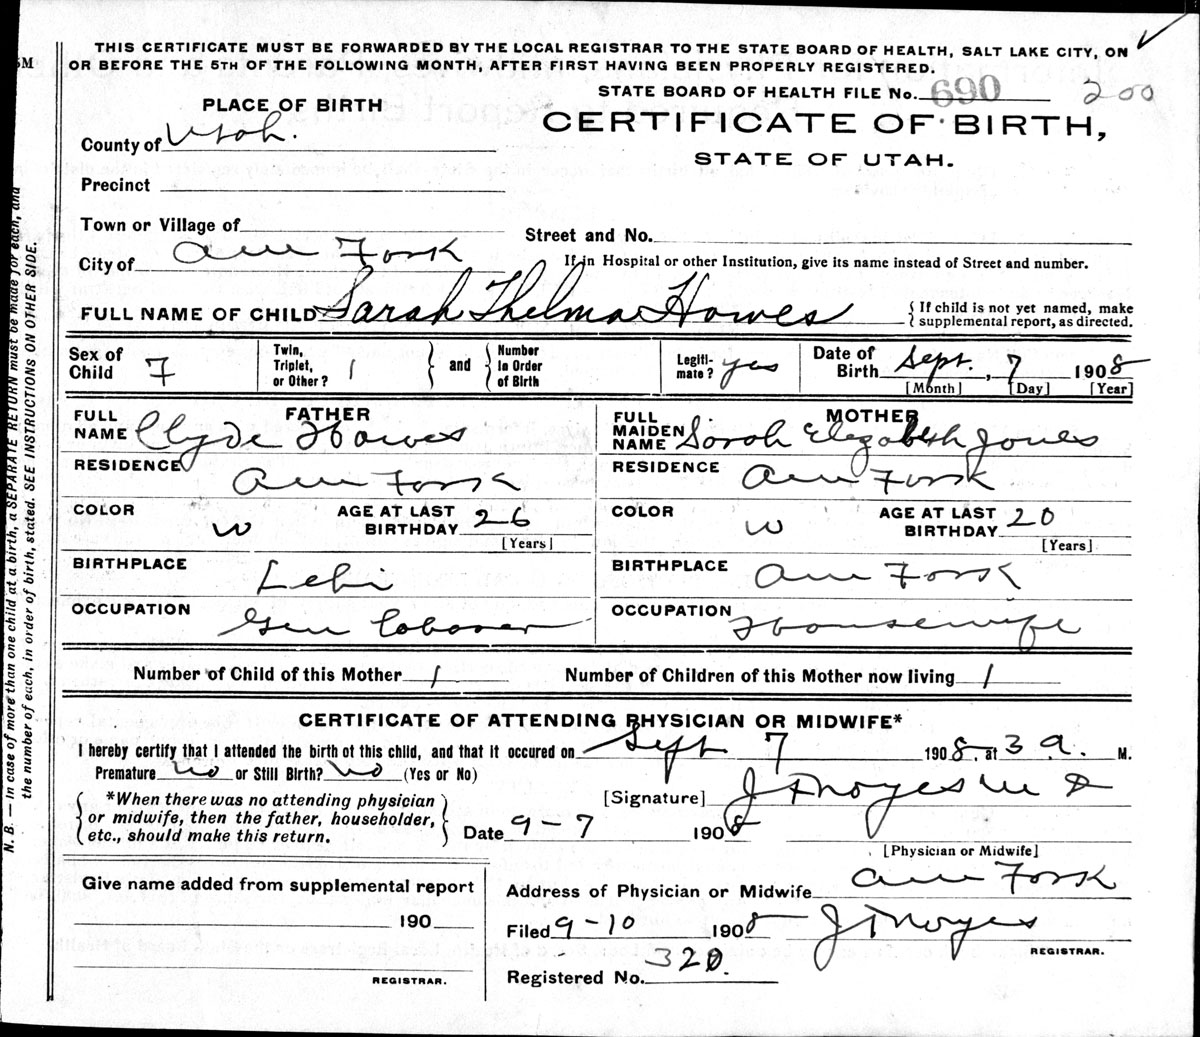 THIS CERTIFICATE MUST BE FORWARDED BY THE LOCAL REGISTRAR TO THE STATE BOARD OF HEALTH, SALT LAKE CITY, ON
OR BEFORE THE 5TH OF THE FOLLOWING MONTH, AFTER FIRST HAVING BEEN PROPERLY REGISTERED.
STATE BOARD OF HEALTH FILE No. 690 200
PLACE OF BIRTH
CERTIFICATE OF BIRTH,
STATE OF UTAH.
County of Utah.
Precinct
Town or Village of
Street and No.
City of Am Fork
If in Hospital or other Institution, give its name instead of Street and number.
FULL NAME OF CHILD Sarah Thelma Howes
{ If child is not yet named, make
supplemental report, as directed.
Sex of Child F
Twin, Triplet, or Other? 1 } and { Number in Order of Birth
Legiti-mate? yes
Date of Birth Sept. , 7 1908
[Month] [Day] [Year]
FATHER
FULL NAME Clyde Howes
MOTHER
FULL MAIDEN NAME Sarah Elezabeth Jones
RESIDENCE Am Fork
RESIDENCE Am Fork
COLOR W AGE AT LAST BIRTHDAY 26 [Years]
COLOR W AGE AT LAST BIRTHDAY 20 [Years]
BIRTHPLACE Lehi
BIRTHPLACE Am Fork
OCCUPATION Gen Laborer
OCCUPATION Housewife
Number of Child of this Mother 1 Number of Children of this Mother now living 1
CERTIFICATE OF ATTENDING PHYSICIAN OR MIDWIFE*
I hereby certify that I attended the birth of this child, and that it occured on Sept 7 1908, at 3 a. M.
Premature No or Still Birth? No (Yes or No)
{ *When there was no attending physician
or midwife, then the father, householder,
etc., should make this return. }
[Signature] J F Noyes M D
Date 9-7 1908
[Physician or Midwife]
Give name added from supplemental report
190
REGISTRAR.
Address of Physician or Midwife Am Fork
Filed 9-10 1908 J F Noyes
REGISTRAR.
Registered No. 320.
N. B. — In case of more than one child at a birth, a SEPARATE RETURN must be made for each, and
the number of each, in order of birth, stated. SEE INSTRUCTIONS ON OTHER SIDE.